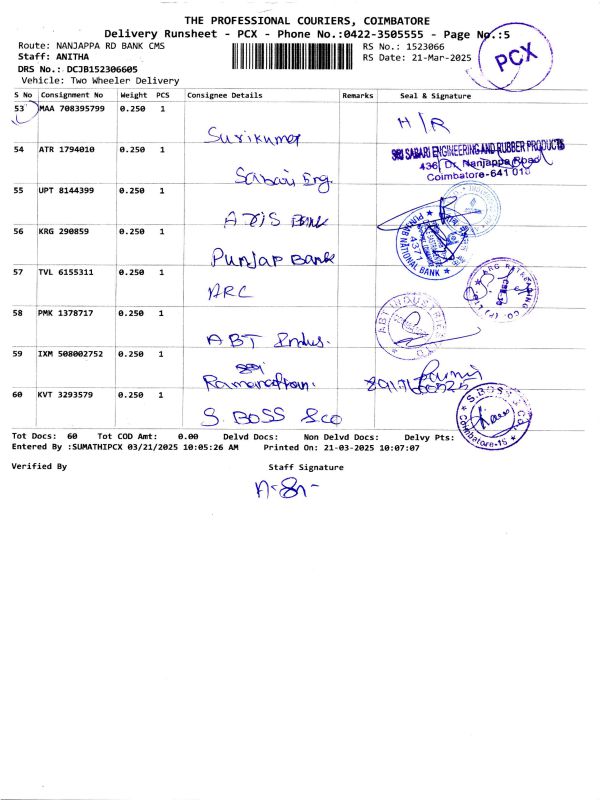 THE PROFESSIONAL COURIERS, COIMBATORE
Delivery Runsheet - PCX - Phone No.:0422-3505555 - Page No.:5
Route: NANJAPPA RD BANK CMS
RS No.: 1523066
Staff: ANITHA
RS Date: 21-Mar-2025
DRS No.: DCJB152306605
PCX
Vehicle: Two Wheeler Delivery
S No Consignment No Weight PCS Consignee Details Remarks Seal & Signature
53 MAA 708395799 0.250 1
Surikumar H/R
54 ATR 1794010 0.250 1
SRI SABARI ENGINEERING AND RUBBER PRODUCTS
436, Dr. Nanjappa Road
Coimbatore-641 018
Sabari Eng.
55 UPT 8144399 0.250 1
Axis Bank
56 KRG 290859 0.250 1
PUNJAB NATIONAL BANK
Punjap Bank
57 TVL 6155311 0.250 1
ARC
58 PMK 1378717 0.250 1
ABT INDUSTRIES
ABT Indus.
59 IXM 508002752 0.250 1
60 KVT 3293579 0.250 1
S. BOSS & CO
S. BOSS & Co
Coimbatore-18
Tot Docs: 60 Tot COD Amt: 0.00 Delvd Docs: Non Delvd Docs: Delvy Pts:
Entered By :SUMATHIPCX 03/21/2025 10:05:26 AM Printed On: 21-03-2025 10:07:07
Verified By Staff Signature